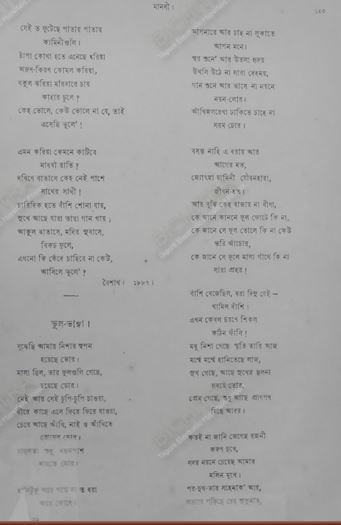 মানসী।
১২৩
সেই ত ফুটেছে পাতায় পাতায়
কামিনীগুলি।
চাঁপা কোথা হতে এনেছে ধরিয়া
অরুণ-কিরণ কোমল করিয়া,
বকুল ঝরিয়া মরিবারে চায়
কাহার চুলে?
কেহ ভোলে, কেউ ভোলে না যে, তাই
এসেছি ভুলে'!
এমন করিয়া কেমনে কাটিবে
মাধবী রাতি?
দখিণে বাতাসে কেহ নেই পাশে
সাথের সাথী!
চারিদিক হতে বাঁশি শোনা যায়,
সুখে আছে যারা তারা গান গায়;
আকুল বাতাসে, মদির সুবাসে,
বিকচ ফুলে,
এখনো কি কেঁদে চাহিবে না কেউ,
আসিলে ভুলে'?
বৈশাখ। ১৮৮৭।
ভুল-ভাঙ্গা।
বুঝেছি আমার নিশার স্বপন
হয়েছে ভোর।
মালা ছিল, তার ফুলগুলি গেছে,
রয়েছে ডোর।
নেই আর সেই চুপি-চুপি চাওয়া,
ধীরে কাছে এসে ফিরে ফিরে যাওয়া,
চেয়ে আছে আঁখি, নাই ও আঁখিতে
প্রেমের ঘোর।
বাহুলতা শুধু বন্ধনপাশ
বাহুতে মোর।
হাসিটুকু আর পড়ে না ত ধরা
অধর কোণে।
আপনারে আর চাহ না লুকাতে
আপন মনে।
স্বর শুনে' আর উতলা হৃদয়
উথলি উঠে না সারা দেহময়,
গান শুনে আর ভাসে না নয়নে
নয়ন-লোর।
আঁখিজলরেখা ঢাকিতে চাহে না
সরম চোর।
বসন্ত নাহি এ ধরায় আর
আগের মত,
জ্যোৎস্না যামিনী যৌবনহারা,
জীবন-হত।
আর বুঝি কেহ বাজায় না বীণা,
কে জানে কাননে ফুল ফোটে কি না,
কে জানে সে ফুল তোলে কি না কেউ
ভরি আঁচোর,
কে জানে সে ফুলে মালা গাঁথে কি না
সারা প্রহর!
বাঁশি বেজেছিল, ধরা দিনু যেই –
থামিল বাঁশি!
এখন কেবল চরণে শিকল
কঠিন ফাঁসি!
মধু নিশা গেছে স্মৃতি তারি আজ
মর্ম্মে মর্ম্মে হানিতেছে লাজ,
সুখ গেছে, আছে সুখের ছলনা
হৃদয়ে তোর,
প্রেম গেছে, শুধু আছে প্রাণপণ
মিছে আদর।
কতই না জানি জেগেছ রজনী
করুণ দুখে,
সদয় নয়নে চেয়েছ আমার
মলিন মুখে।
পর-দুখ-ভার সহেনাক' আর,